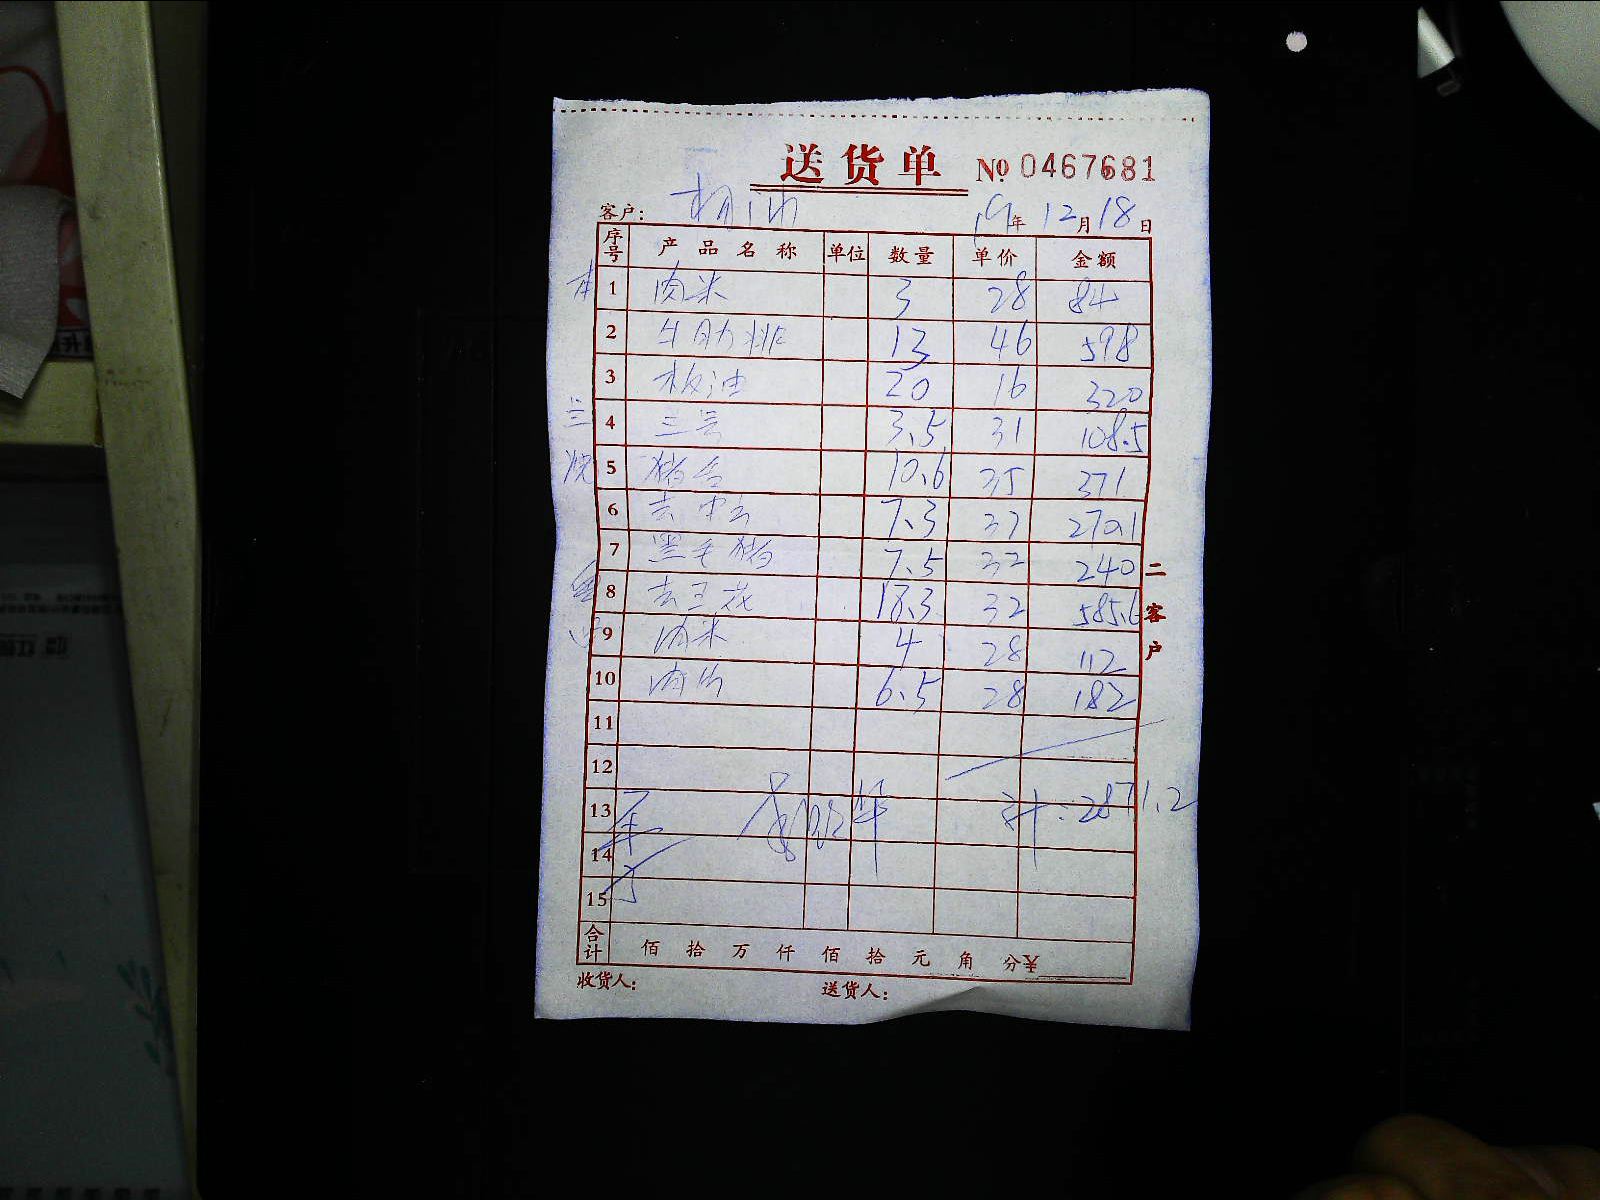 送货单 № 0467681
客户：
19年 12月 18日
序号 产品名称 单位 数量 单价 金额
1 肉米 3 28 84
2 牛肋排 13 46 598
3 板油 20 16 320
三 4 三号 3.5 31 108.5
5 猪 10.6 35 371
6 去 7.3 37 270.1
7 黑毛猪 7.5 32 240
8 去五花 18.3 32 585.6
9 肉米 4 28 112
10 肉 6.5 28 182
11
12
13 计：2871.2
14
15
合计 佰 拾 万 仟 佰 拾 元 角 分￥
收货人： 送货人：
二客户